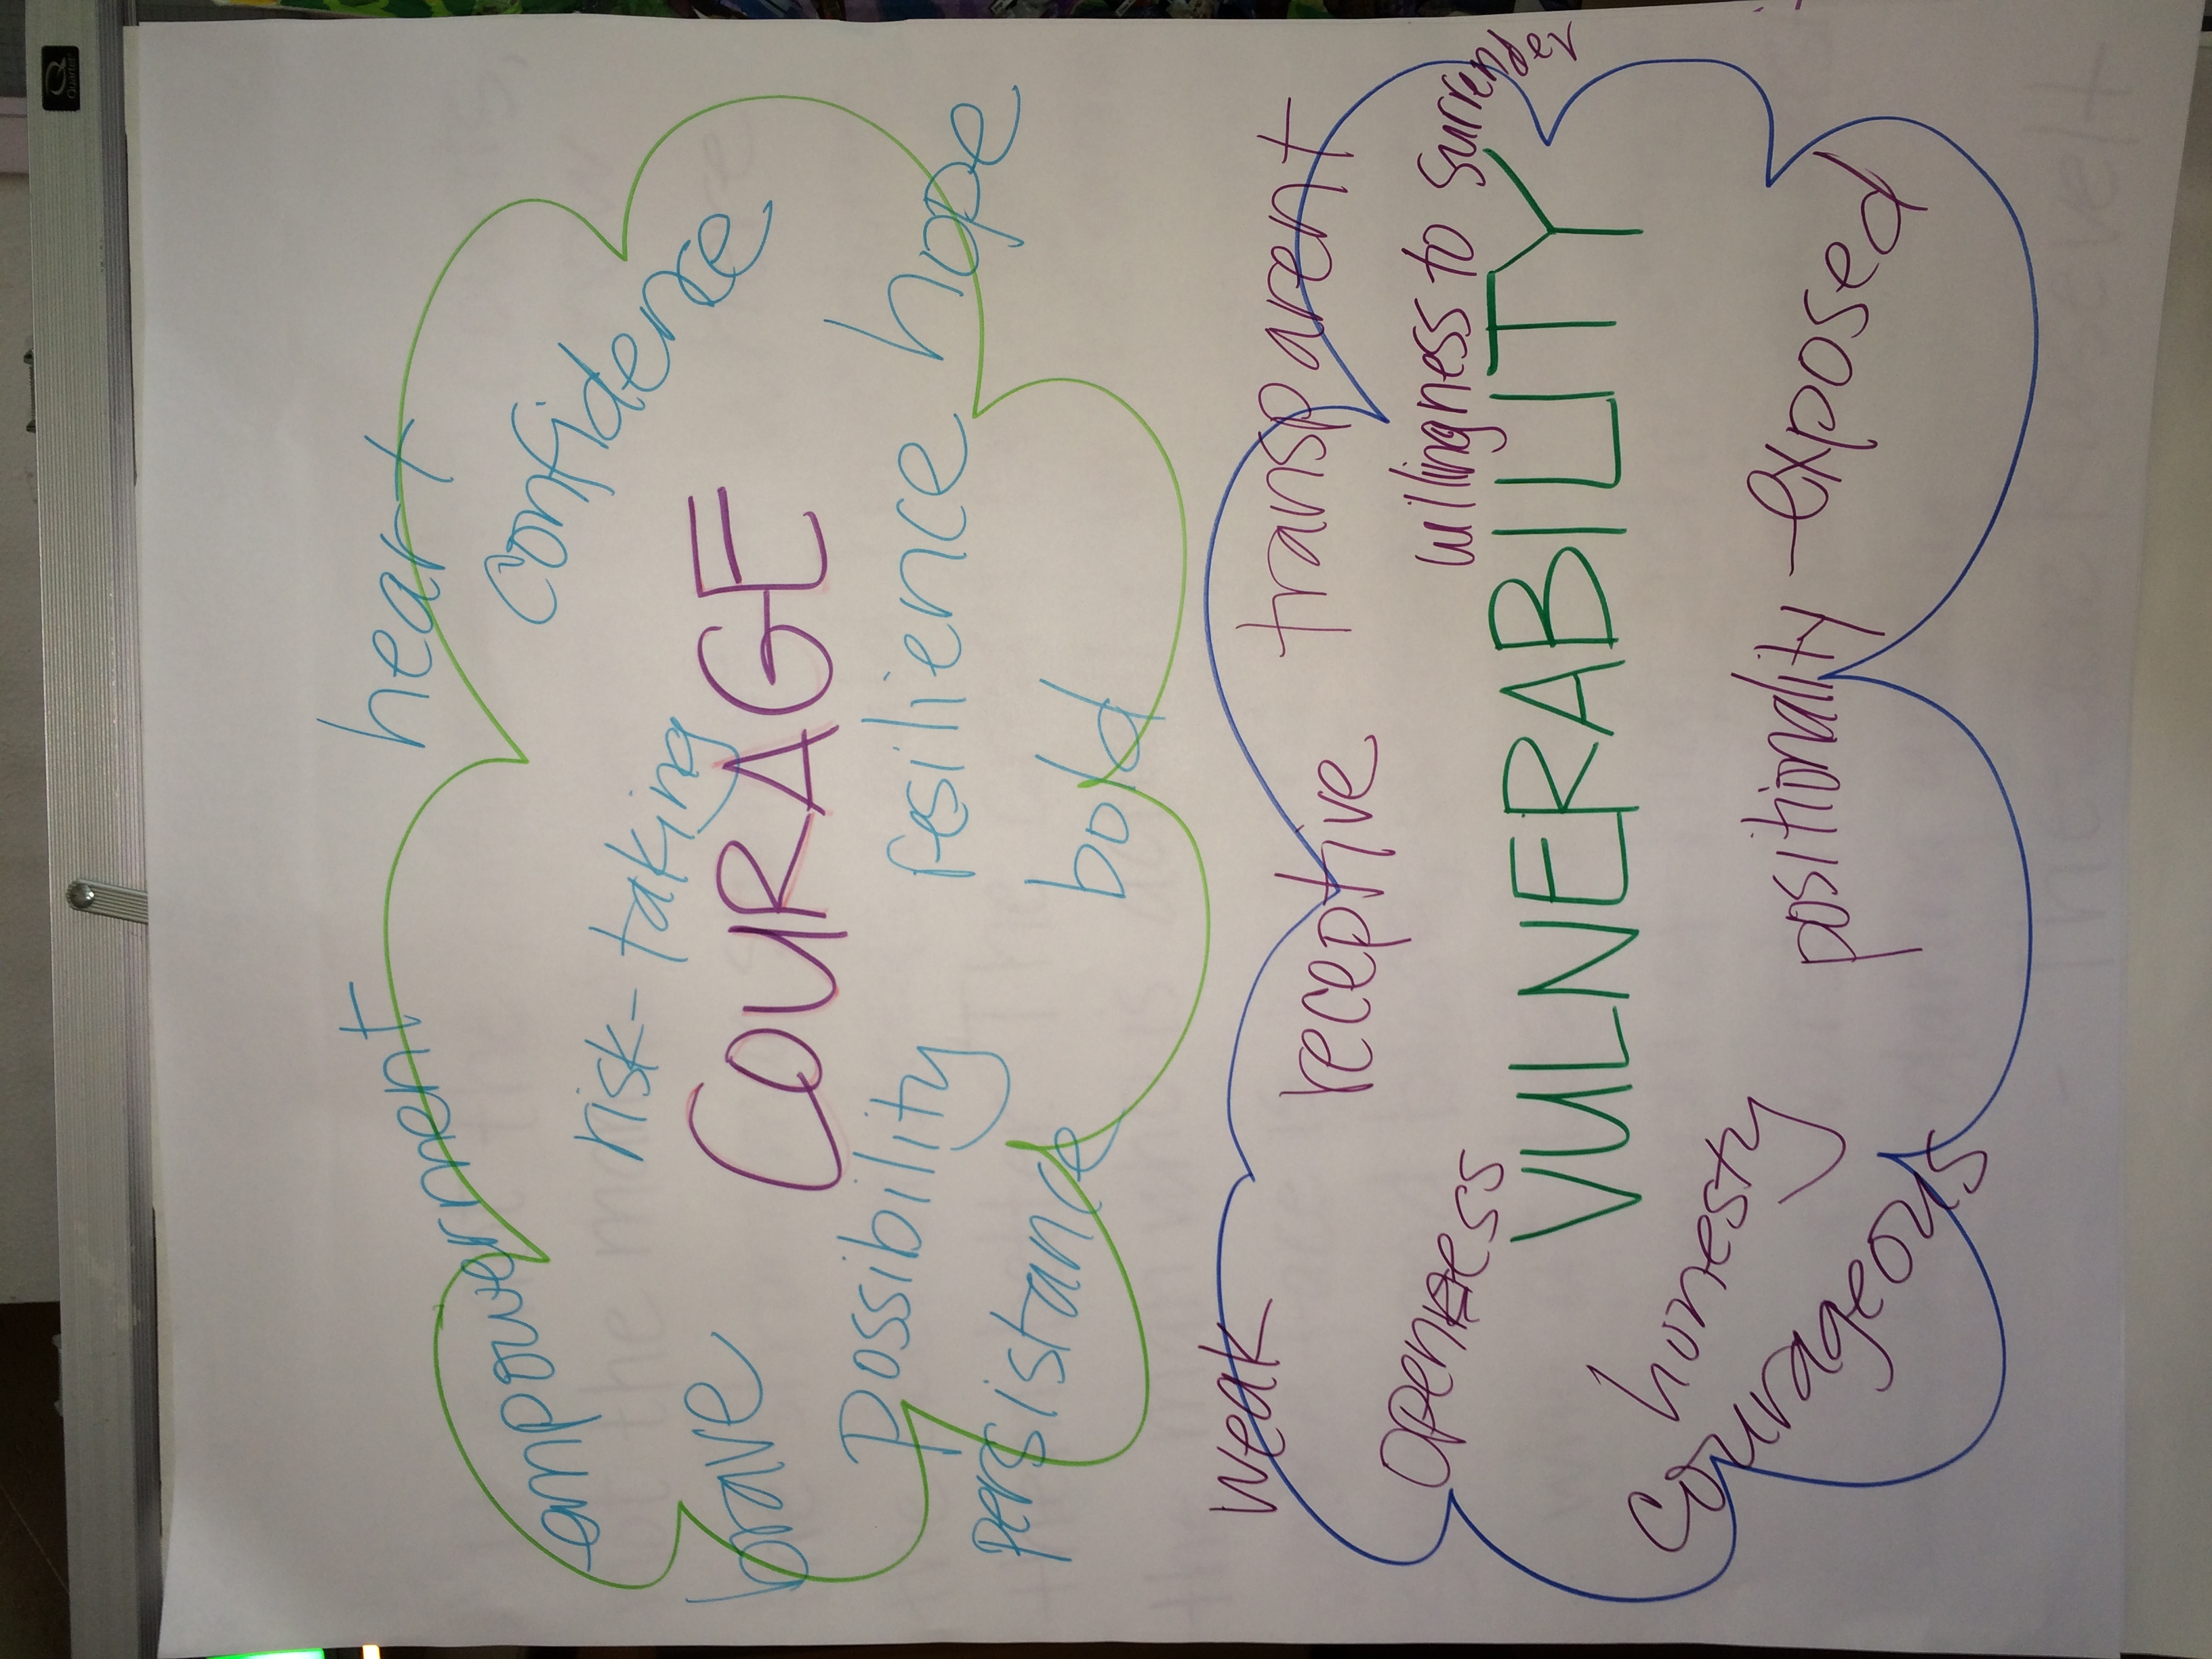 empowerment heart
risk-taking confidence
brave COURAGE
possibility resilience hope
persistance bold
weak receptive transparent
openness willingness to surrender
VULNERABILITY
honesty positionality - exposed
courageous
Quartet